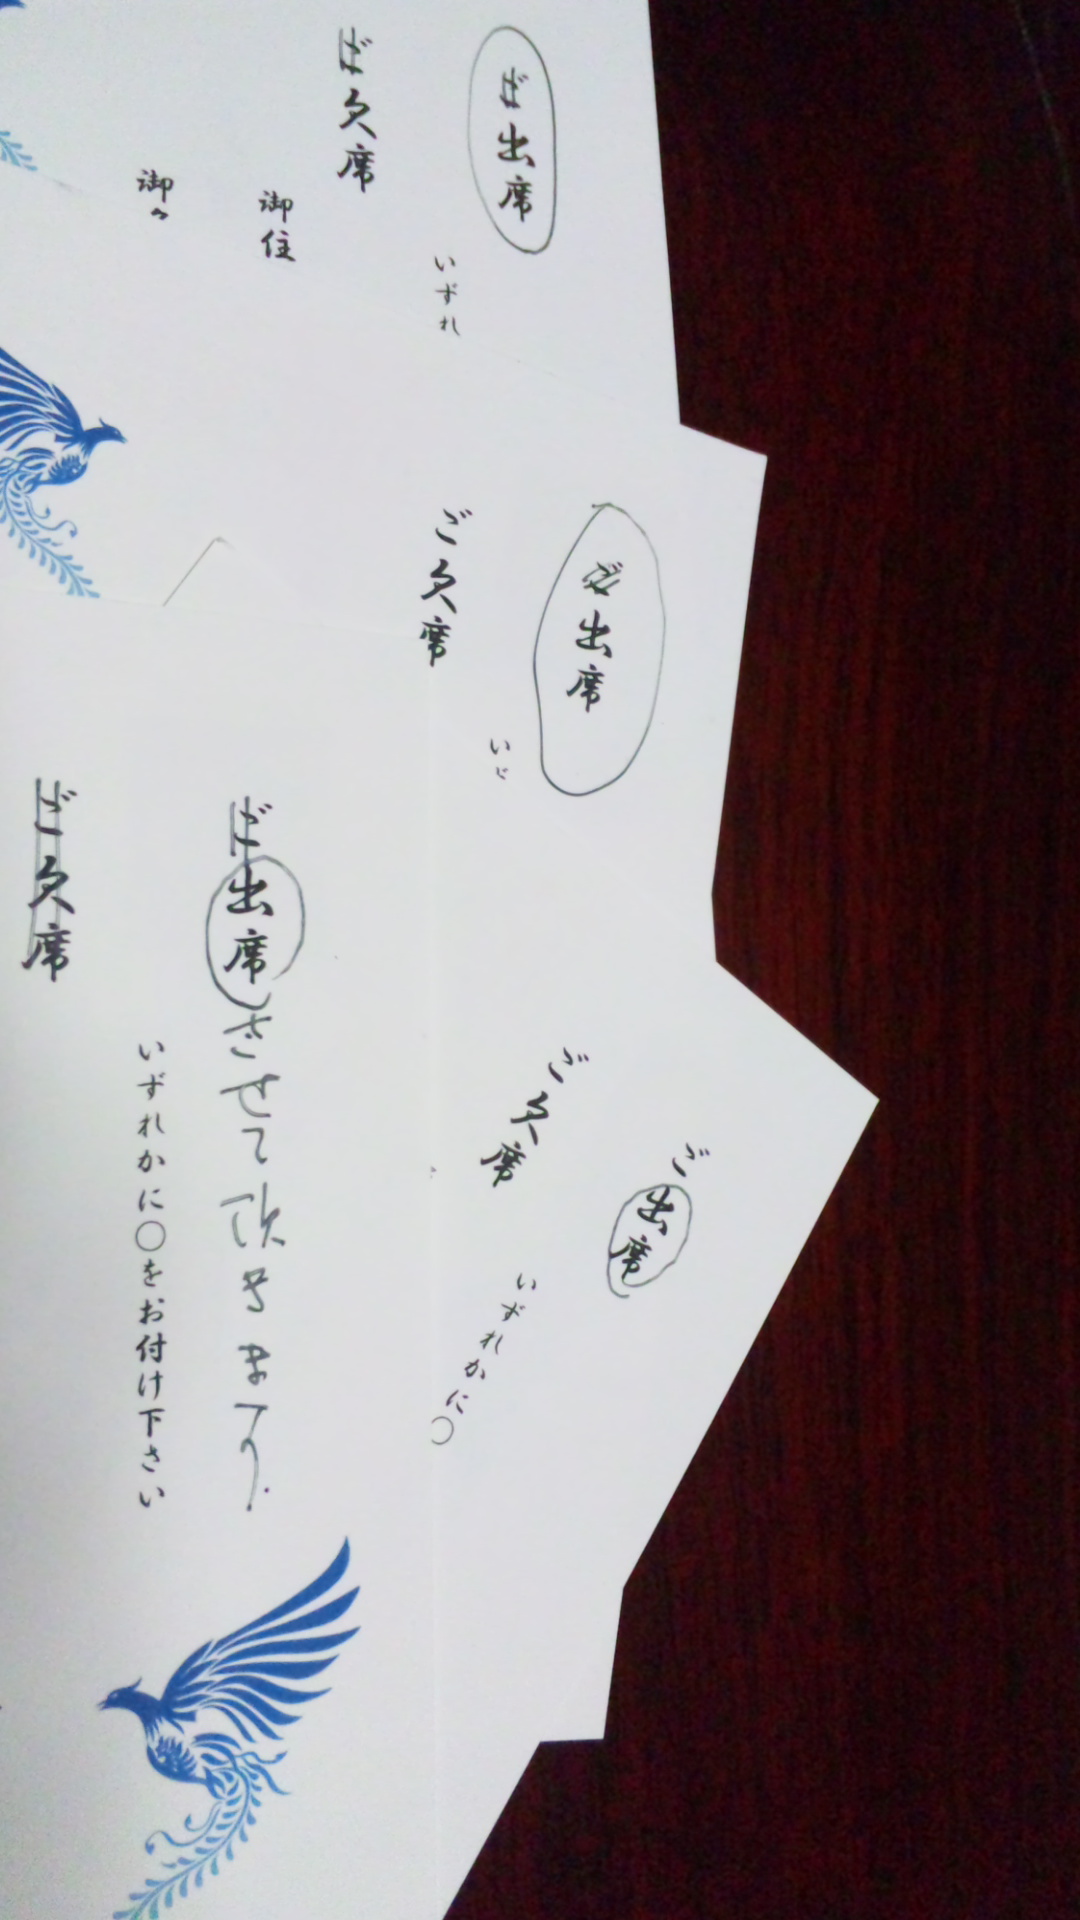 ご出席
いずれ
ご欠席
御住
御
ご出席
い
ご欠席
ご出席
いずれかに〇
ご欠席
ご出席させて頂きます。
いずれかに〇をお付け下さい
ご欠席